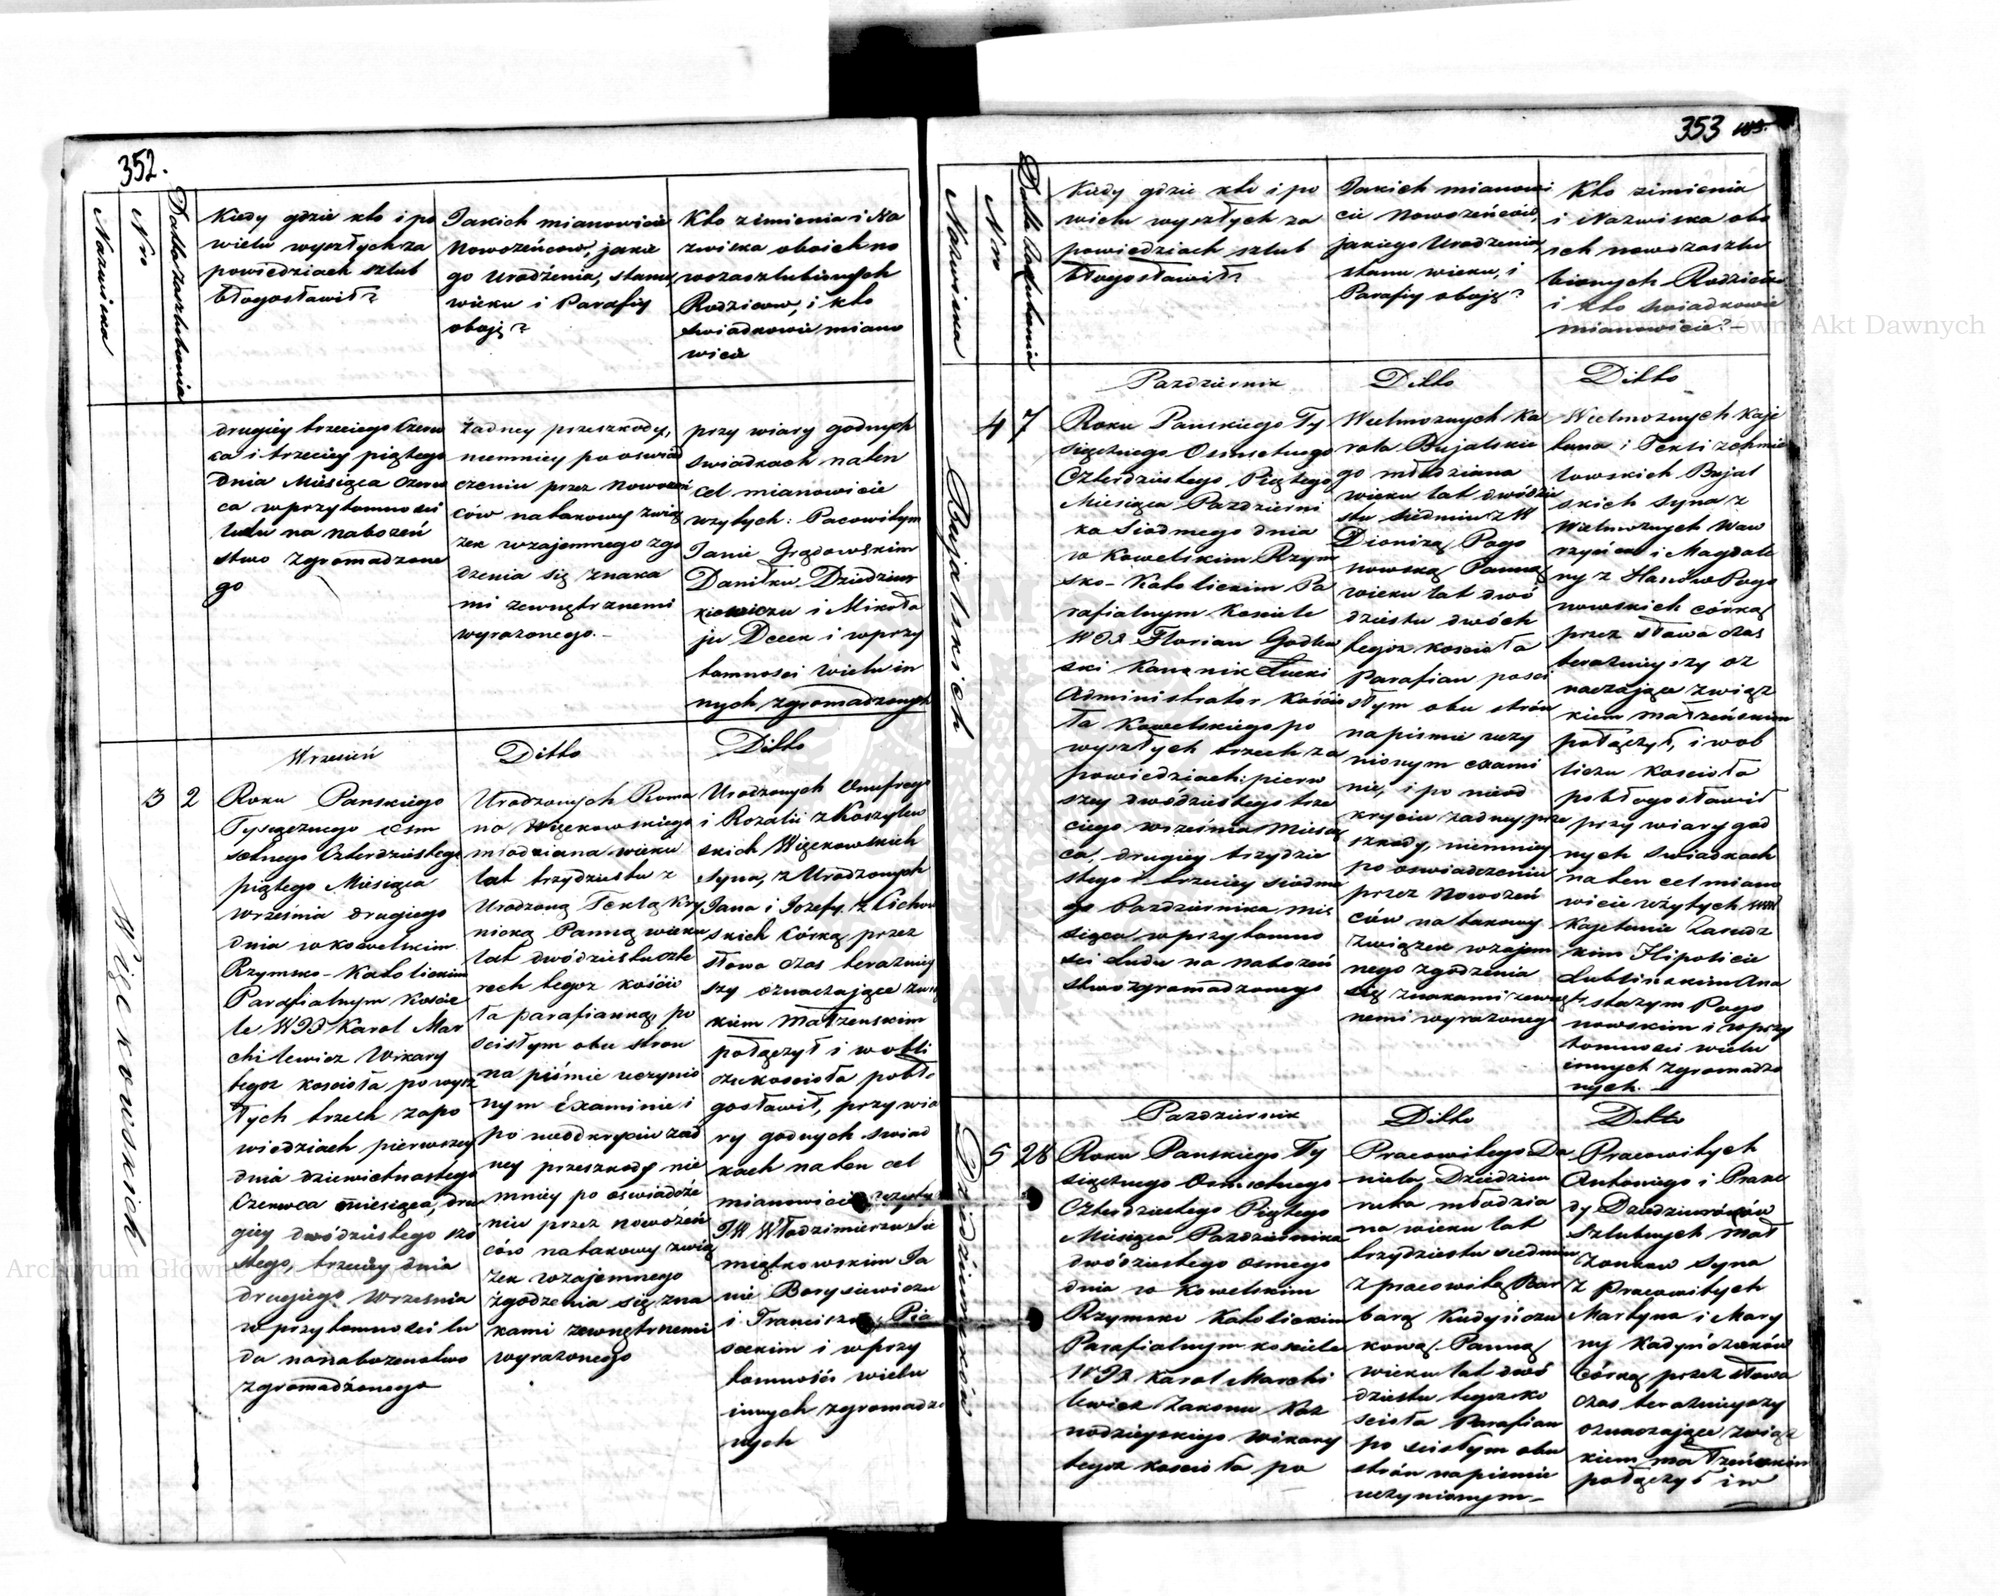 352.
Nazwiska
Nro
Datta zaszlubienia
Kiedy gdzie kto i po
wielu wyszłych za
powiedziach szlub
błogosławił?
Jakich mianowicie
Nowożeńców, jakie
go Urodzenia, stanu,
wieku i Parafiy
oboję?
Kto z imienia i Na
zwiska oboich no
wozaszlubionych
Rodziców, i kto
swiadkowie miano
wicie
drugiey trzeciego Czerw
ca i trzeciey piątego
dnia Miesiąca Czerw
ca w przytomności
ludu na nabożeń
stwo zgromadzone
go
żadney przeszkody,
niemniey po oswiad
czeniu przez Nowożeń
ców na takowy zwią
zek wzajemnego zgo
dzenia się znaka
mi zewnętrznemi
wyrażonego.
przy wiary godnych
swiadkach na ten
cel mianowicie
wzytych: Pacowitym
Janie Grądowskim
Daniłku Dziedziur
kiewiczu i Mikoła
ju Deeek i w przy
tomnosci wielu in
nych zgromadzonych
Więckowskich
3
2
Wrzesień
Roku Panskiego
Tysiącznego Osm
setnego Czterdziestego
piątego Miesiąca
września drugiego
dnia w Kowelskim
Rzymsko-Katolickim
Parafialnym Koscie
le WJX Karol Mar
chilewicz Wikary
tegoz kosciola po wysz
łych trzech zapo
wiedziach pierwszey
dnia dziewietnastego
Czerwca miesiąca, dru
giey dwódziestego szo
stego, trzeciey dnia
drugiego Września
w przytomnosci lu
du na nabozenstwo
zgromadzonego
Ditto
Urodzonych Roma
na Więckowskiego
młodziana wieku
lat trzydziestu z
Urodzoną Teklą Kry
nicką Panną wieku
lat dwódziestu czte
rech tegoz kościo
ła parafianką, po
scisłym obu stron
na piśmie uczynio
nym examinie i
po nieodkryciu zad
ney przeszkody nie
mniey po oswiadcze
niu przez nowożeń
ców na takowy zwią
zek wzajemnego
zgodzenia się zna
kami zewnętrznemi
wyrażonego
Ditto
Urodzonych Onufrego
i Rozalii z Koszylew
skich Więckowskich
Syna, z Urodzonych
Jana i Jozefy z Cichow
skich Córką przez
słowa czas teraźniey
szy oznaczające zwią
kiem Małżenskim
połączył i w obli
czu kosciola pobło
gosławił, przy wia
ry godnych swiad
kach na ten cel
mianowicie wzytych
JW Włodzimierzu Sie
miątkowskim Ja
nie Borysiewiczu
i Franciszku Pia
seckim i w przy
tomności wielu
innych zgromadzo
nych
353
Nazwiska
Nro
Datta zaszlubienia
Kiedy gdzie kto i po
wielu wyszłych za
powiedziach szlub
błogosławił?
Jakich mianowi
cie Nowożeńców,
jakiego Urodzenia,
stanu wieku, i
Parafiy oboję?
Kto z imienia
i Nazwiska obo
ich nowozaszlu
bionych Rodziców
i kto swiadkowie
mianowicie?
Bujalskich
4
7
Pazdziernik
Roku Panskiego Ty
siącznego Osmsetnego
Czterdziestego Piątego
Miesiąca Pazdzierni
ka Siodmego dnia
w Kowelskim Rzym
sko-Katolickim Pa
rafialnym Kosciele
WJX Florian Godlew
ski Kanonik Łucki
Administrator Koscio
ła Kowelskiego po
wyszłych trzech za
powiedziach: pierw
szey dwódziestego trze
ciego września Miesią
ca, drugiey trzydzie
stego i trzeciey siodme
go Pazdziernika mie
siąca, w przytomno
sci Ludu na nabożeń
stwo zgromadzonego
Ditto
Wielmoznych Ka
rola Bujalskie
go młodziana
wieku lat dwódzie
stu siedmiu z W
Dionizą Pogo
nowską Panną
wieku lat dwó
dziestu dwóch
tegoz kosciola
Parafian posci
słym obu strón
na pismie uczy
nionym exami
nie, i po nieod
kryciu żadney prze
szkody, niemniey
po oswiadczeniu
przez Nowożeń
ców na takowy
związek wzajem
nego zgodzenia
się znakami zewnętr
nemi wyrażonego
Ditto
Wielmoznych Kaje
tana i Tekli z Chmie
lowskich Bujal
skich Syna z
Wielmoznych Waw
rzyńca i Magdale
ny z Hanów Pogo
nowskich córką
przez słowa czas
terażnieyszy oz
naczające związ
kiem małżeńskim
połączył, i w ob
liczu Kosciola
pobłogosławił
przy wiary god
nych swiadkach
na ten cel miano
wicie wzytych WW
Kajetanie Zasudz
kim Hipolicie
Lublińskim Ana
stazym Pogo
nowskim i w przy
tomnosci wielu
innych zgromadzo
nych.
Dziedziuruków
5
28
Pazdziernik
Roku Panskiego Ty
siącznego Osmsetnego
Czterdziestego Piątego
Miesiąca Pazdziernika
dwódziestego osmego
dnia w Kowelskim
Rzymsko Katolickim
Parafialnym kosciele
WJX Karol Marchi
lewicz Zakonu Kaz
nodzieyskiego Wikary
tegoz kosciola po
Ditto
Pracowitego Da
niela Dziedziu
ruka młodzia
na wieku lat
trzydziestu siedmiu
z pracowitą Bar
barą Kudyńczu
kową Panną
wieku lat dwó
dziestu tegoz ko
sciola Parafian
po scisłym obu
strón na pismie
uczynionym
Ditto
Pracowitych
Antoniego i Praxe
dy Dziedziuruków
Szlubnych Mał
żonków Syna
z Pracowitych
Martyna i Mary
ny Kadyńczuków
Córką przez słowa
czas teraznieyszy
oznaczające związ
kiem małżeńskim
połączył i w
Archiwum Główne Akt Dawnych
Archiwum Główne Akt Dawnych